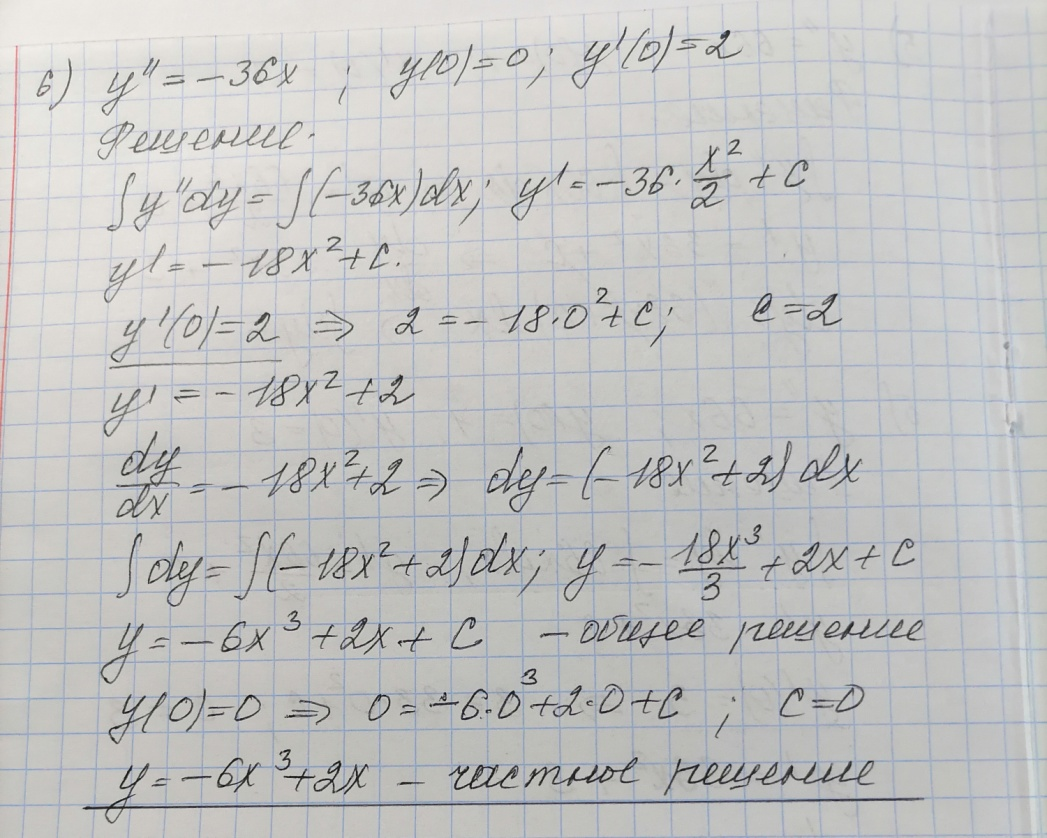 6) y'' = -36x ; y(0)=0; y'(0)=2
Решение.
∫y''dy = ∫(-36x)dx; y' = -36·x²/2 + C
y' = -18x² + C.
y'(0)=2 ⇒ 2 = -18·0² + C; C=2
y' = -18x² + 2
dy/dx = -18x² + 2 ⇒ dy = (-18x² + 2) dx
∫dy = ∫(-18x² + 2)dx; y = -18x³/3 + 2x + C
y = -6x³ + 2x + C - общее решение
y(0)=0 ⇒ 0 = -6·0³ + 2·0 + C ; C=0
y = -6x³ + 2x - частное решение